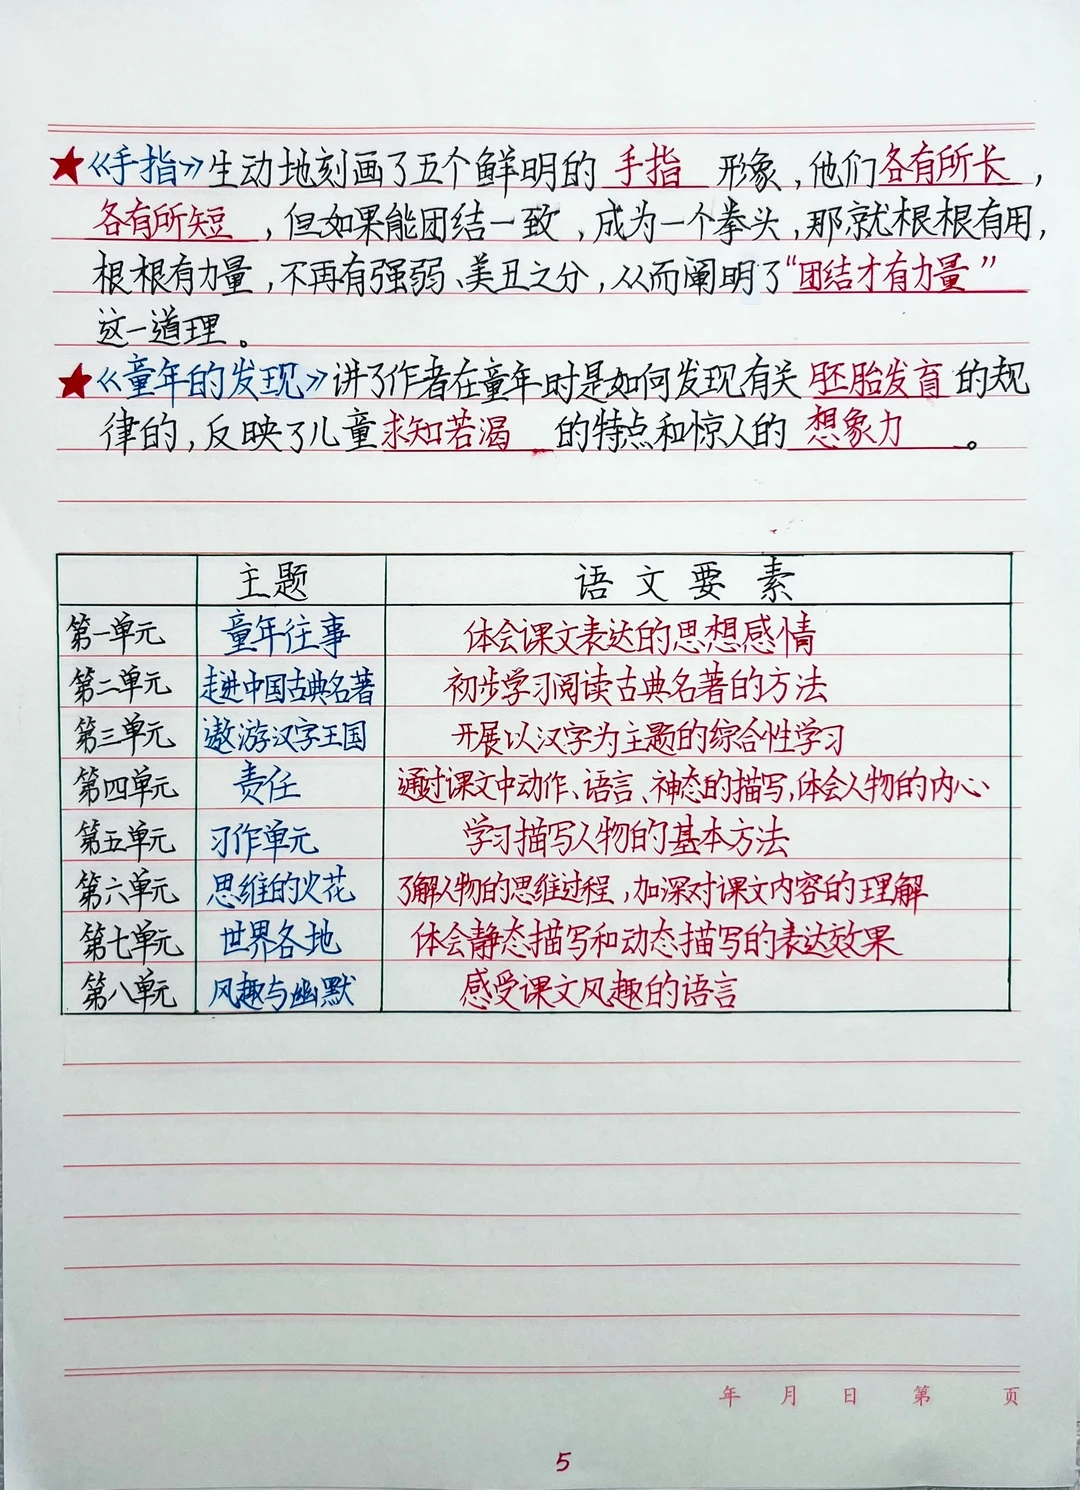 ★《手指》生动地刻画了五个鲜明的 手指 形象，他们各有所长，
各有所短，但如果能团结一致，成为一个拳头，那就根根有用，
根根有力量，不再有强弱、美丑之分，从而阐明了“团结才有力量”
这一道理。
★《童年的发现》讲了作者在童年时是如何发现有关 胚胎发育 的规
律的，反映了儿童求知若渴 的特点和惊人的 想象力 。
主题 语文要素
第一单元 童年往事 体会课文表达的思想感情
第二单元 走进中国古典名著 初步学习阅读古典名著的方法
第三单元 遨游汉字王国 开展以汉字为主题的综合性学习
第四单元 责任 通过课文中动作、语言、神态的描写，体会人物的内心、
第五单元 习作单元 学习描写人物的基本方法
第六单元 思维的火花 了解人物的思维过程，加深对课文内容的理解
第七单元 世界各地 体会静态描写和动态描写的表达效果
第八单元 风趣与幽默 感受课文风趣的语言
年 月 日 第 页
5